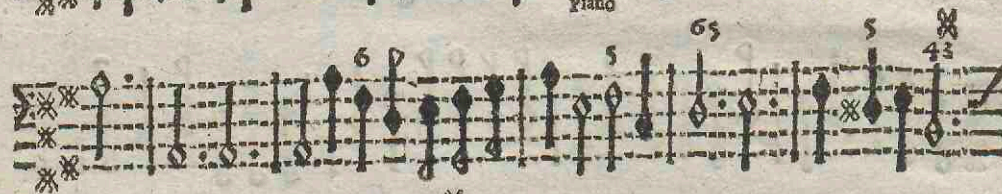 Piano
6 5 6 5 5
4 3